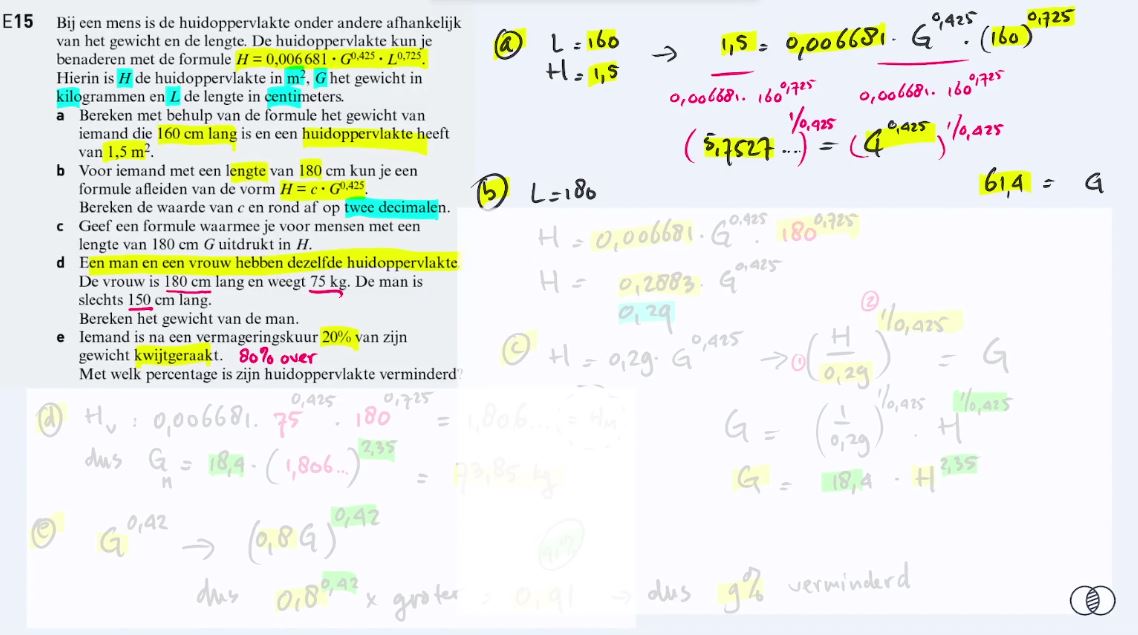 E15 Bij een mens is de huidoppervlakte onder andere afhankelijk
van het gewicht en de lengte. De huidoppervlakte kun je
benaderen met de formule H = 0,006 681 · G^0,425 · L^0,725.
Hierin is H de huidoppervlakte in m², G het gewicht in
kilogrammen en L de lengte in centimeters.
a Bereken met behulp van de formule het gewicht van
iemand die 160 cm lang is en een huidoppervlakte heeft
van 1,5 m².
b Voor iemand met een lengte van 180 cm kun je een
formule afleiden van de vorm H = c · G^0,425.
Bereken de waarde van c en rond af op twee decimalen.
c Geef een formule waarmee je voor mensen met een
lengte van 180 cm G uitdrukt in H.
d Een man en een vrouw hebben dezelfde huidoppervlakte.
De vrouw is 180 cm lang en weegt 75 kg. De man is
slechts 150 cm lang.
Bereken het gewicht van de man.
e Iemand is na een vermageringskuur 20% van zijn
gewicht kwijtgeraakt. 80% over
Met welk percentage is zijn huidoppervlakte verminderd?
a L = 160 → 1,5 = 0,006681 · G^0,425 · (160)^0,725
H = 1,5
0,006681 · 160^0,725 0,006681 · 160^0,725
(5,7527...)^1/0,425 = (G^0,425)^1/0,425
61,4 = G
b L = 180
H = 0,006681 · G^0,425 · 180^0,725
H = 0,2883 · G^0,425
0,29
c H = 0,29 · G^0,425 → ① (H/0,29)^1/0,425 ② = G
G = (1/0,29)^1/0,425 · H^1/0,425
G = 18,4 · H^2,35
d H_V : 0,006681 · 75^0,425 · 180^0,725 = 1,806... = H_M
dus G_M = 18,4 · (1,806...)^2,35 = 73,85 kg
e G^0,42 → (0,8G)^0,42
dus 0,8^0,42 x groter = 0,91 → dus 9% verminderd